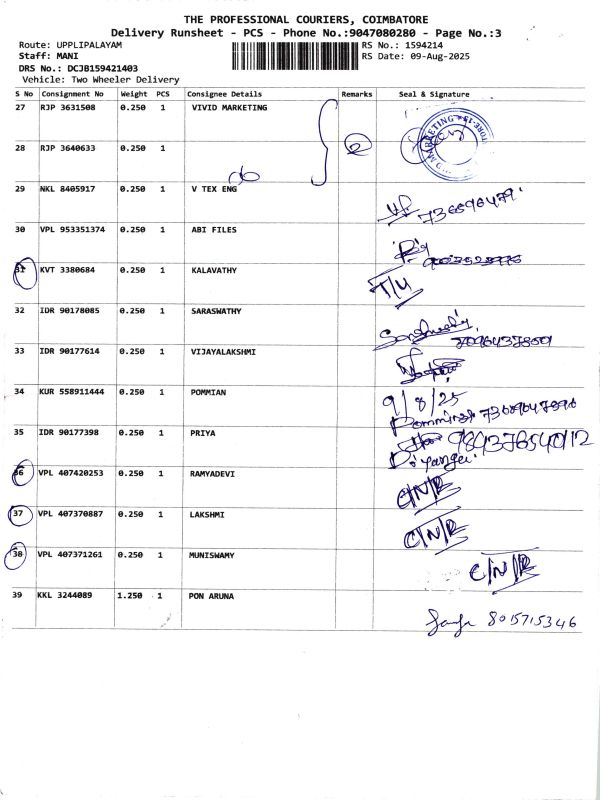 THE PROFESSIONAL COURIERS, COIMBATORE
Delivery Runsheet - PCS - Phone No.:9047080280 - Page No.:3
Route: UPPLIPALAYAM RS No.: 1594214
Staff: MANI RS Date: 09-Aug-2025
DRS No.: DCJB159421403
Vehicle: Two Wheeler Delivery
S No Consignment No Weight PCS Consignee Details Remarks Seal & Signature
27 RJP 3631508 0.250 1 VIVID MARKETING 2
28 RJP 3640633 0.250 1
29 NKL 8405917 0.250 1 V TEX ENG
30 VPL 953351374 0.250 1 ABI FILES
31 KVT 3380684 0.250 1 KALAVATHY T/U
32 IDR 90178085 0.250 1 SARASWATHY
33 IDR 90177614 0.250 1 VIJAYALAKSHMI
34 KUR 558911444 0.250 1 POMMIAN 9/8/25
35 IDR 90177398 0.250 1 PRIYA
36 VPL 407420253 0.250 1 RAMYADEVI C/N/R
37 VPL 407370887 0.250 1 LAKSHMI C/N/R
38 VPL 407371261 0.250 1 MUNISWAMY C/N/R
39 KKL 3244089 1.250 1 PON ARUNA 8015715346